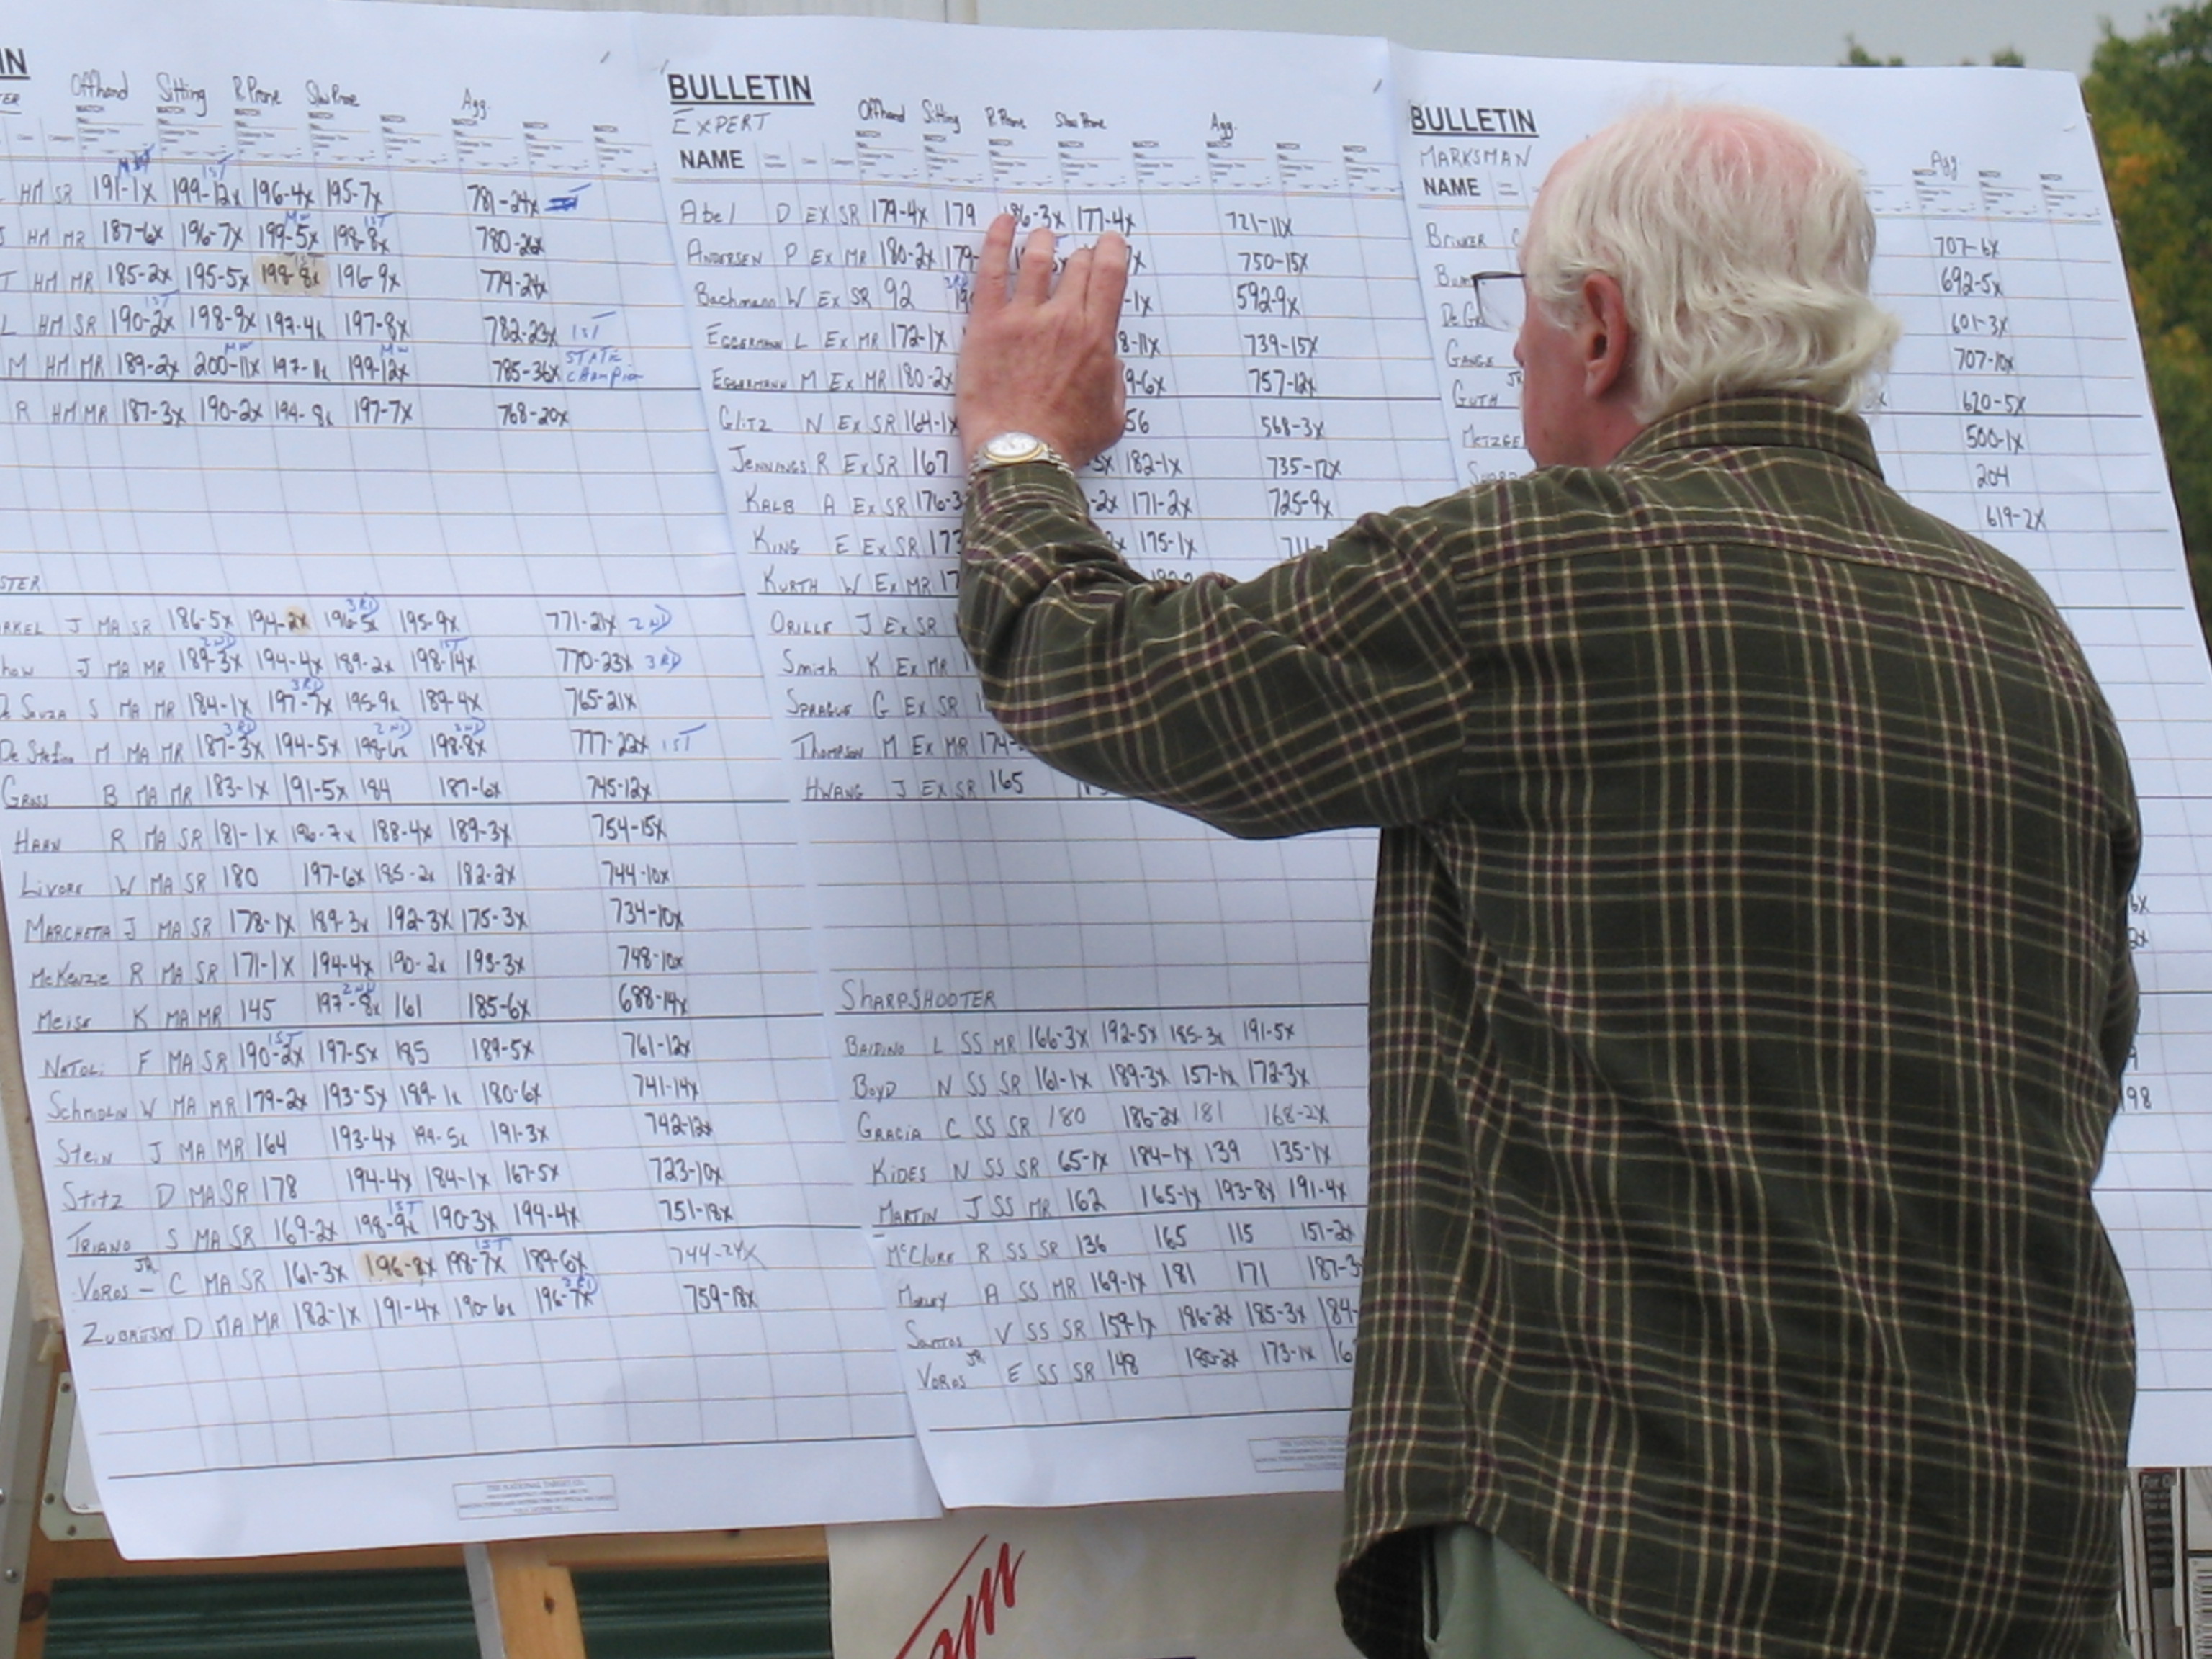 IN
TER Offhand Sitting R. Prone Slow Prone Agg.
MW 1ST
L HM SR 191-1x 199-12x 196-4x 195-7x 781-24x
MW 1ST
J HM MR 187-6x 196-7x 199-5x 198-8x 780-26x
1ST
T HM MR 185-2x 195-5x 198-8x 196-9x 774-24x
1ST
L HM SR 190-2x 198-9x 197-4x 197-8x 782-23x 1ST
MW MW STATE
M HM MR 189-2x 200-11x 197-11x 199-12x 785-36x CHAMPION
R HM MR 187-3x 190-2x 194-8x 197-7x 768-20x
STER
3RD
RKEL J MA SR 186-5x 194-2x 196-5x 195-9x 771-21x 2ND
2ND 1ST
how J MA MR 189-3x 194-4x 189-2x 198-14x 770-23x 3RD
3RD
De Souza S MA MR 184-1x 197-7x 195-9x 189-4x 765-21x
3RD 2ND 2ND
De Stefino M MA MR 187-3x 194-5x 198-6x 198-8x 777-22x 1ST
Gross B MA MR 183-1x 191-5x 184 187-6x 745-12x
HAHN R MA SR 181-1x 196-7x 188-4x 189-3x 754-15x
Livore W MA SR 180 197-6x 185-2x 182-2x 744-10x
MARCHETTA J MA SR 178-1x 189-3x 192-3x 175-3x 734-10x
McKenzie R MA SR 171-1x 194-4x 190-2x 193-3x 748-10x
2ND
Meise K MA MR 145 197-8x 161 185-6x 688-14x
1ST
Natoli F MA SR 190-2x 197-5x 185 189-5x 761-12x
Schmolin W MA MR 179-2x 193-5x 189-1x 180-6x 741-14x
Stein J MA MR 164 193-4x 194-5x 191-3x 742-12x
Stitz D MA SR 178 194-4x 184-1x 167-5x 723-10x
1ST
TRIANO S MA SR 169-2x 198-9x 190-3x 194-4x 751-18x
JR 1ST
VOROS - C MA SR 161-3x 196-8x 198-7x 189-6x 744-24x
3RD
ZUBRITSKY D MA MR 182-1x 191-4x 190-6x 196-7x 759-18x
THE NATIONAL TARGET CO.
BULLETIN
EXPERT Offhand Sitting R. Prone Slow Prone Agg.
NAME
Abel D EX SR 179-4x 179 186-3x 177-4x 721-11x
ANDERSEN P EX MR 180-2x 179- 7x 750-15x
3RD
Bachmann W EX SR 92 -1x 592-9x
EGGERMANN L EX MR 172-1x 8-11x 739-15x
EGGERMANN M EX MR 180-2x 9-6x 757-12x
GLITZ N EX SR 164-1x 56 568-3x
JENNINGS R EX SR 167 182-1x 735-12x
KALB A EX SR 176-3 -2x 171-2x 725-9x
KING E EX SR 173 175-1x 711-
KURTH W EX MR 17
ORILLE J EX SR
Smith K EX MR
SPRAGUE G EX SR
Thompson M EX MR 174-
HWANG J EX SR 165
SHARPSHOOTER
BAIDINO L SS MR 166-3x 192-5x 185-3x 191-5x
BOYD N SS SR 161-1x 189-3x 157-1x 172-3x
GRACIA C SS SR 180 186-2x 181 168-2x
KIDES N SS SR 65-1x 184-1x 139 135-1x
MARTIN J SS MR 162 165-1x 193-8x 191-4x
McCLURE R SS SR 136 165 115 151-2x
Morley A SS MR 169-1x 181 171 187-3
Santos V SS SR 159-1x 186-2x 185-3x 184-
JR
VOROS E SS SR 148 180-2x 173-1x 16
BULLETIN
MARKSMAN Agg.
NAME
BRINKER 707-6x
692-5x
601-3x
707-10x
JR
GUTH 620-5x
METZGE 500-1x
204
619-2x
6x
2x
9
198
For O